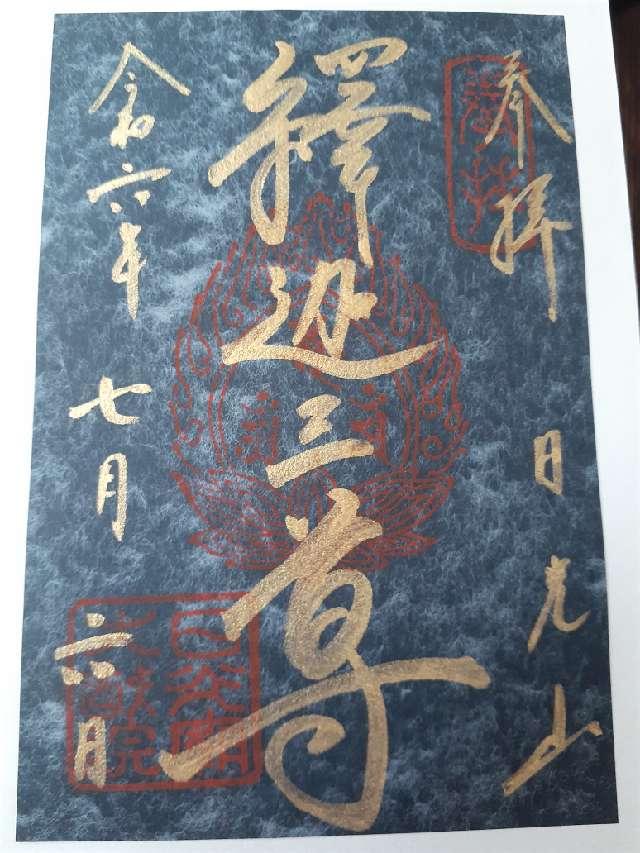 奉拝
日光山
釋迦三尊
令和六年七月六日
日光廟
大猷院